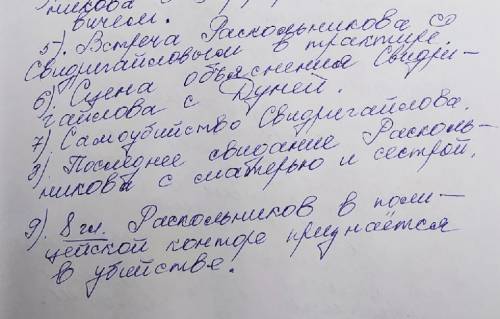 никова
вичем.
5). Встреча Раскольникова с
Свидригайловым в трактире.
6). Сцена объяснения Свидри-
гайлова с Дуней.
7) Самоубийство Свидригайлова.
8). Последнее свидание Расколь-
никова с матерью и сестрой.
9). 8 гл. Раскольников в поли-
цейской конторе признаётся
в убийстве.